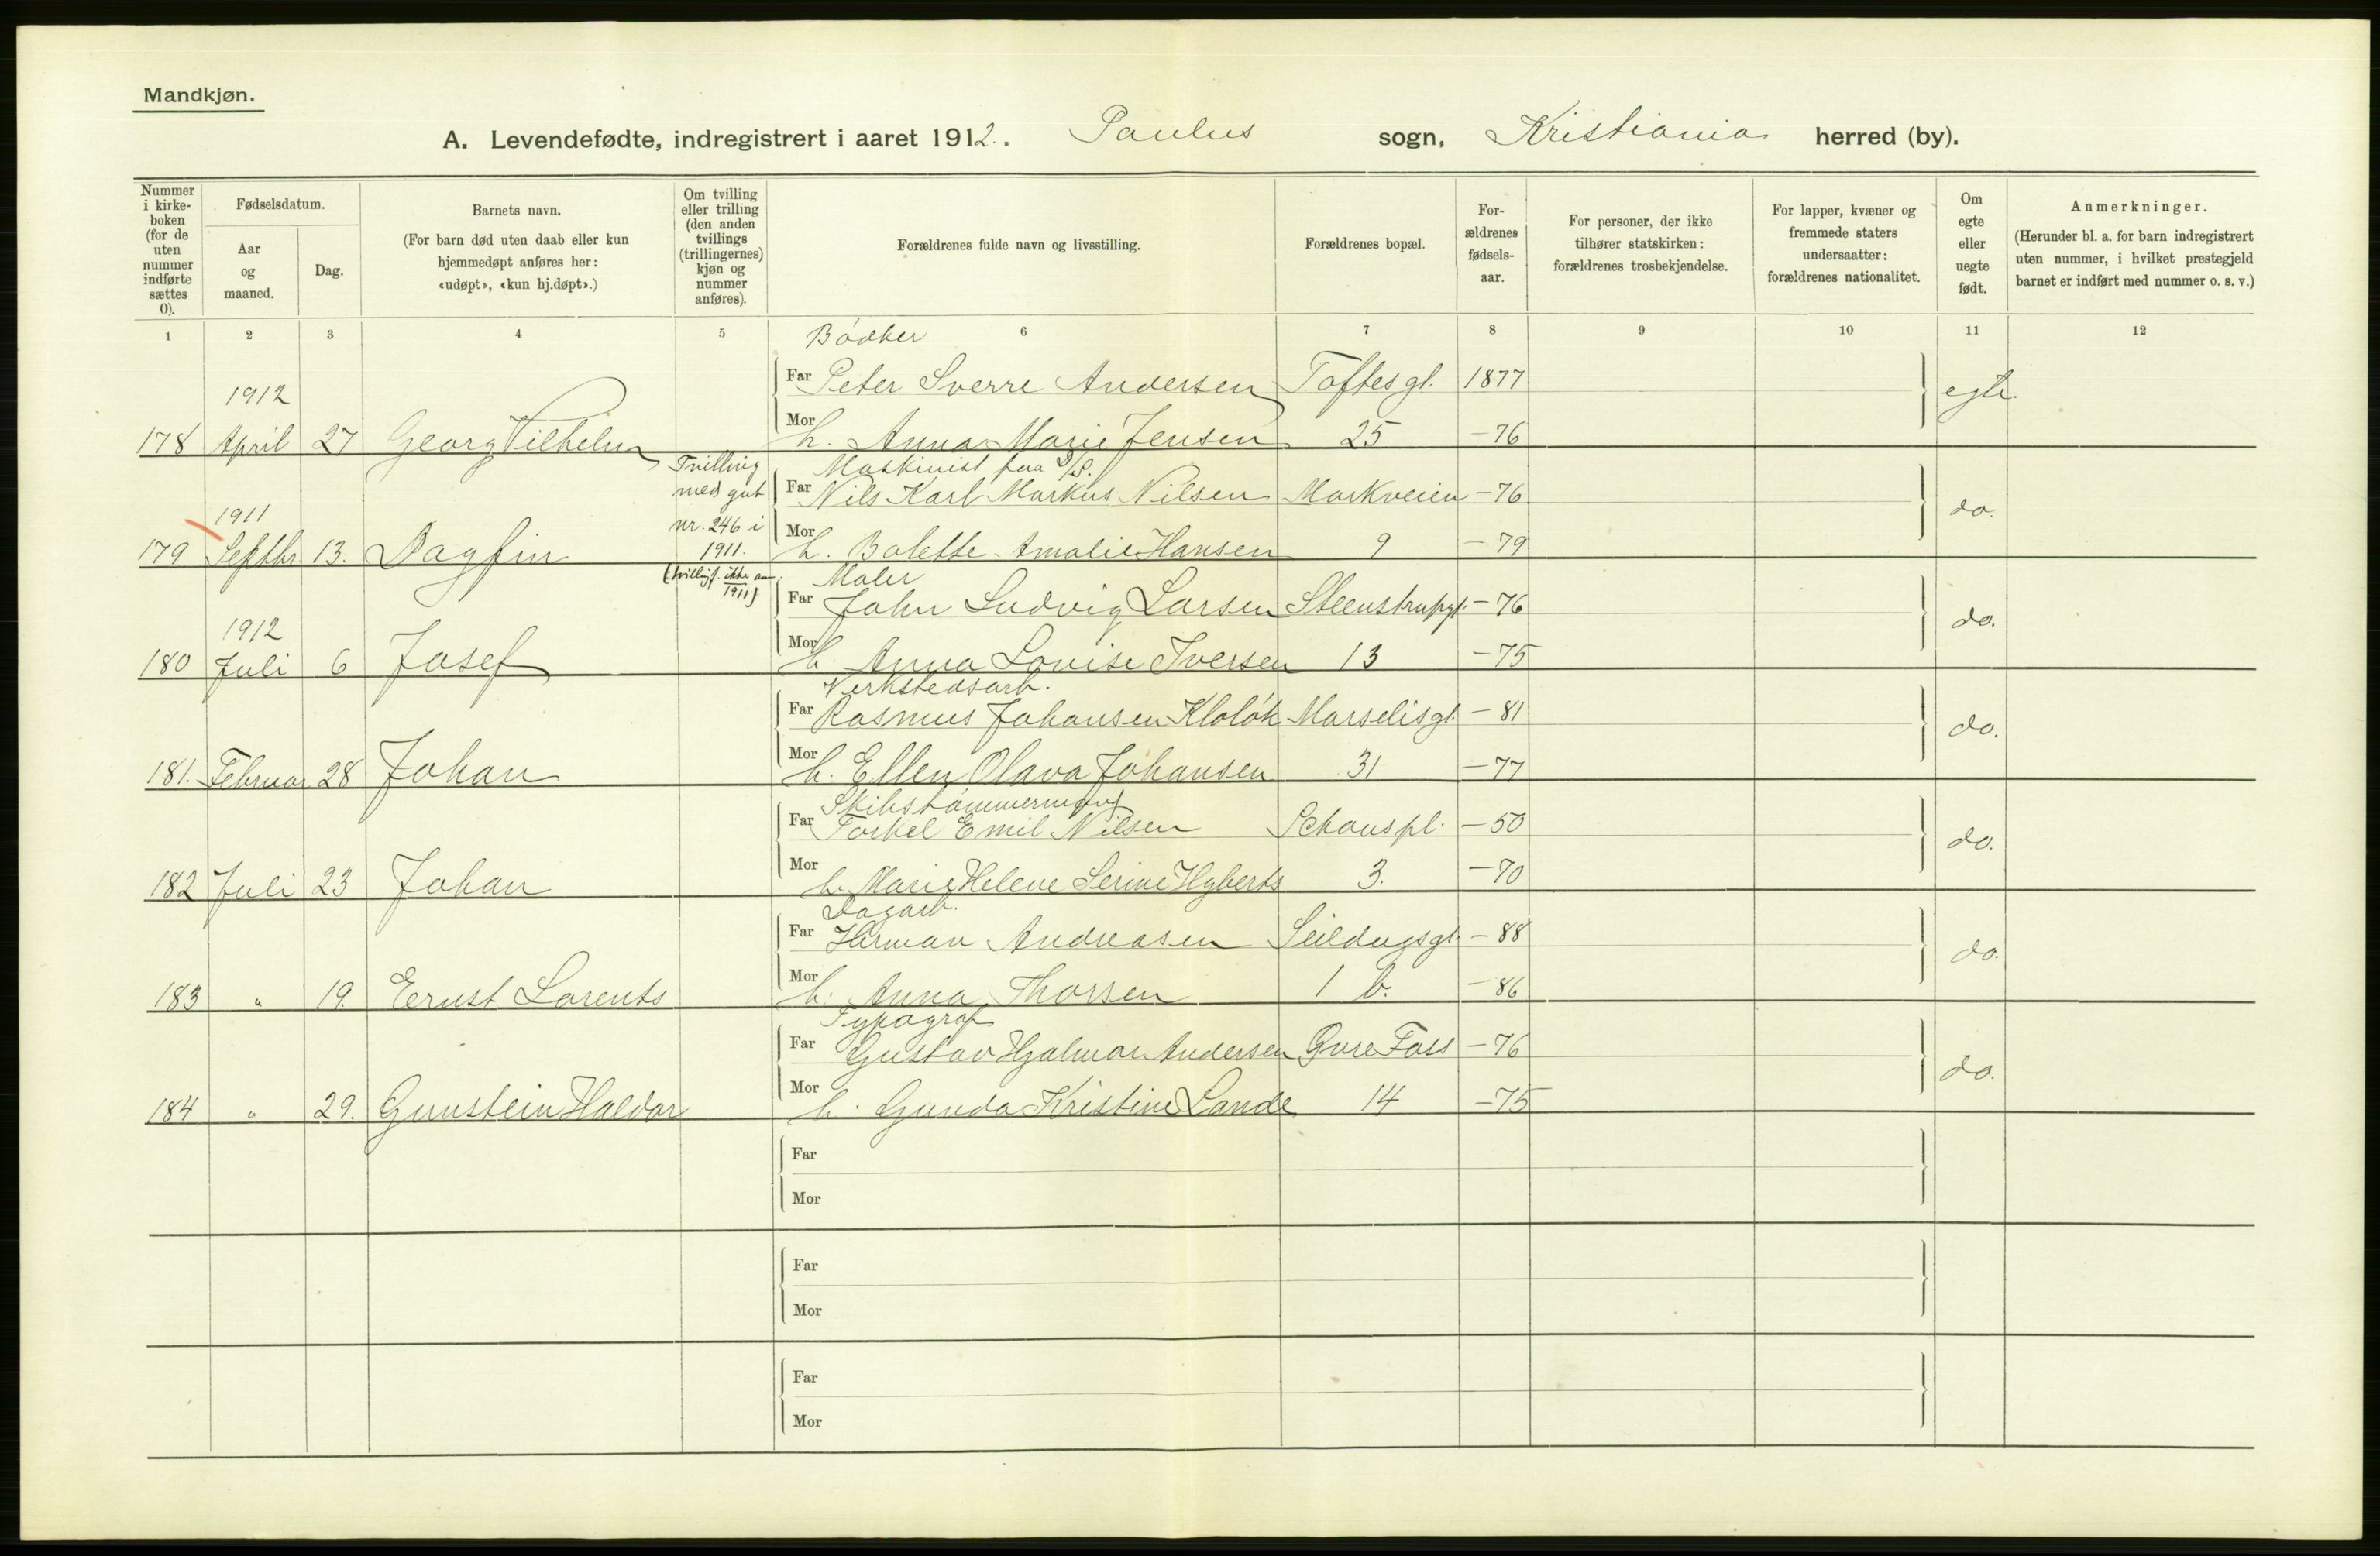 Mandkjøn.
A. Levendefødte, indregistrert i aaret 1912. Paulus sogn, Kristiania herred (by).
Nummer i kirke-boken (for de uten nummer indførte sættes 0).
Fødselsdatum.
Aar og maaned.
Dag.
Barnets navn.
(For barn død uten daab eller kun hjemmedøpt anføres her: «udøpt», «kun hj.døpt».)
Om tvilling eller trilling (den anden tvillings (trillingernes) kjøn og nummer anføres).
Forældrenes fulde navn og livsstilling.
Forældrenes bopæl.
For-ældrenes fødsels-aar.
For personer, der ikke tilhører statskirken: forældrenes trosbekjendelse.
For lapper, kvæner og fremmede staters undersaatter: forældrenes nationalitet.
Om egte eller uegte født.
Anmerkninger.
(Herunder bl. a. for barn indregistrert uten nummer, i hvilket prestegjeld barnet er indført med nummer o. s. v.)
1 2 3 4 5 6 7 8 9 10 11 12
Bödker
Far Peter Sverre Andersen Toftesgt. 1877
1912 egte.
178 April 27 Georg Vilhelm Mor h. Anna Marie Jensen 25 -76
Tvilling med gut nr. 246 i 1911.
Maskinist paa D/S.
Far Nils Karl Markus Nilsen Markveien -76
1911 do.
179 Septbr 13. Dagfin Mor h. Bolette Amalie Hansen 9 -79
(tvilling f. ikke anm. 1911)
Maler
Far John Ludvig Larsen Steenstrupgt. -76
1912 do.
180 Juli 6 Josef Mor h. Anna Lovise Iversen 13 -75
Verkstedsarb.
Far Rasmus Johansen Klolök Marselisgt. -81
do.
181. Februar 28 Johan Mor h. Ellen Olava Johansen 31 -77
Skibstömmermand
Far Torkel Emil Nilsen Schouspl. -50
do.
182 Juli 23 Johan Mor h. Marie Helene Serine Hyberts 3. -70
Dagarb.
Far Herman Andreasen Seildugsgt. -88
do.
183 " 19. Ernst Lorents Mor h. Anna Thorsen 1 b. -86
Typograf
Far Gustav Hjalmar Andersen Gvre Foss -76
do.
184 " 29. Gunstein Haldor Mor h. Gunda Kristine Lande 14 -75
Far
Mor
Far
Mor
Far
Mor